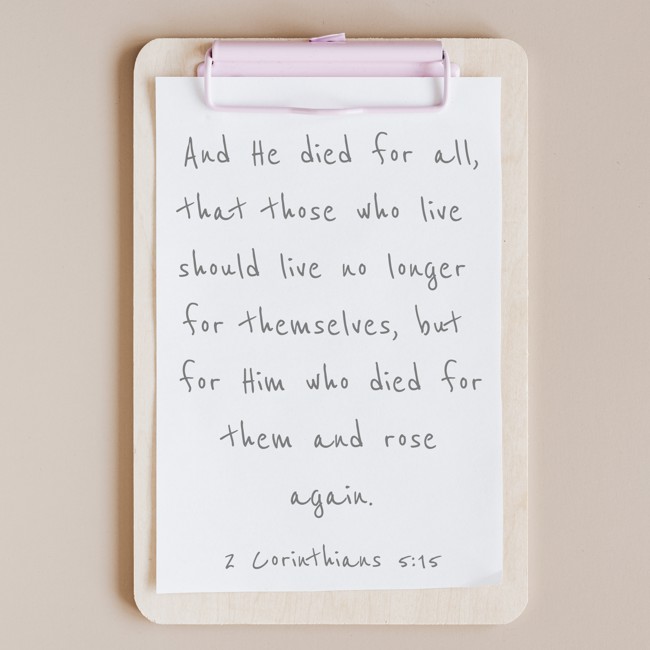 And He died for all,
that those who live
should live no longer
for themselves, but
for Him who died for
them and rose
again.
2 Corinthians 5:15